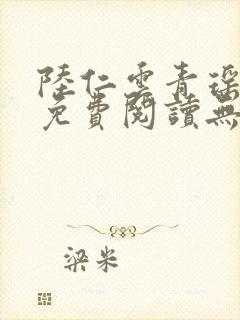 陸仁雲青瑶
免費閱讀無
梁米